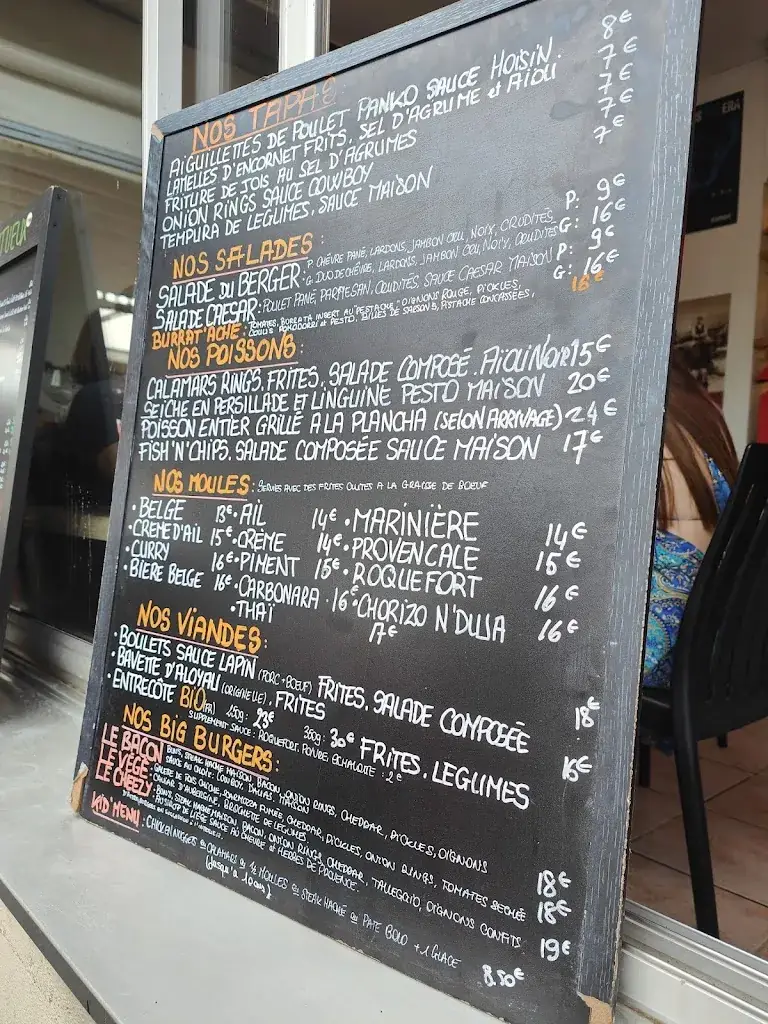 NOS TAPAS
AIGUILLETTES DE POULET PANKO SAUCE HOISIN 8€
LAMELLES D'ENCORNET FRITS, SEL D'AGRUME et AÏOLI 7€
FRITURE DE JOLS AU SEL D'AGRUMES 7€
ONION RINGS SAUCE COWBOY 7€
TEMPURA DE LEGUMES, SAUCE MAISON 7€
NOS SALADES :
SALADE DU BERGER : P: CHÈVRE PANÉ, LARDONS, JAMBON CRU, NOIX, CRUDITÉS P: 9€
G: DUO DE CHÈVRE, LARDONS, JAMBON CRU, NOIX, CRUDITÉS G: 16€
SALADE CAESAR : POULET PANÉ, PARMESAN, CRUDITÉS, SAUCE CAESAR MAISON P: 9€
G: 16€
BURRAT'ACHE : TOMATES, BURRATA INSERT AU PESTACHE, OIGNONS ROUGE, PICKLES, 16€
COULIS POMODORI et PESTO, BILLES DE SAISONS, PISTACHE CONCASSÉES,
NOS POISSONS :
CALAMARS RINGS, FRITES, SALADE COMPOSÉ. AÏOLI Noir 15€
SEICHE EN PERSILLADE ET LINGUINE PESTO MAISON 20€
POISSON ENTIER GRILLÉ A LA PLANCHA (SELON ARRIVAGE) 24€
FISH'N'CHIPS, SALADE COMPOSÉE SAUCE MAISON 17€
NOS MOULES : SERVIES AVEC DES FRITES CUITES A LA GRAISSE DE BOEUF
• BELGE 13€ • AIL 14€ • MARINIÈRE 14€
• CREME D'AIL 15€ • CRÈME 14€ • PROVENCALE 15€
• CURRY 16€ • PIMENT 15€ • ROQUEFORT 16€
• BIERE BELGE 16€ • CARBONARA 16€ • CHORIZO N'DUJA 16€
• THAÏ 17€
NOS VIANDES :
• BOULETS SAUCE LAPIN (PORC + BOEUF) FRITES, SALADE COMPOSÉE 18€
• BAVETTE D'ALOYAU (ORIGINE UE), FRITES
• ENTRECÔTE BIO (FR) 250g: 23€ 350g: 30€ FRITES, LEGUMES 16€
SUPPLEMENT SAUCE : ROQUEFORT, POIVRE ECHALOTTE : 2€
NOS BIG BURGERS :
LE BACON : BUNS, STEAK HACHÉ MAISON, BACON, ONION RINGS, CHEDDAR, PICKLES, OIGNONS 18€
SAUCE AU CHOIX: COWBOY, DALLAS, MAISON
LE VÉGÉ : GALETTE DE POIS CHICHE, SCARMOZZA FUMÉE, CHEDDAR, PICKLES, ONION RINGS, TOMATES SECHÉE 18€
CAVIAR D'AUBERGINE, BROCHETTE DE LEGUMES
LE CHEEZY : BUNS, STEAK HACHÉ MAISON, BACON, ONION RINGS, CHEDDAR, TALEGGIO, OIGNONS CONFITS 19€
AU SIROP DE LIEGE SAUCE AU CHÈVRE et HERBES DE PROVENCE
KID'MENU : CHICKEN NUGGETS ou CALAMARS ou 1/2 MOULES ou STEAK HACHÉ ou PATE BOLO + 1 GLACE 8.50€
(Jusqu'à 10 ans)